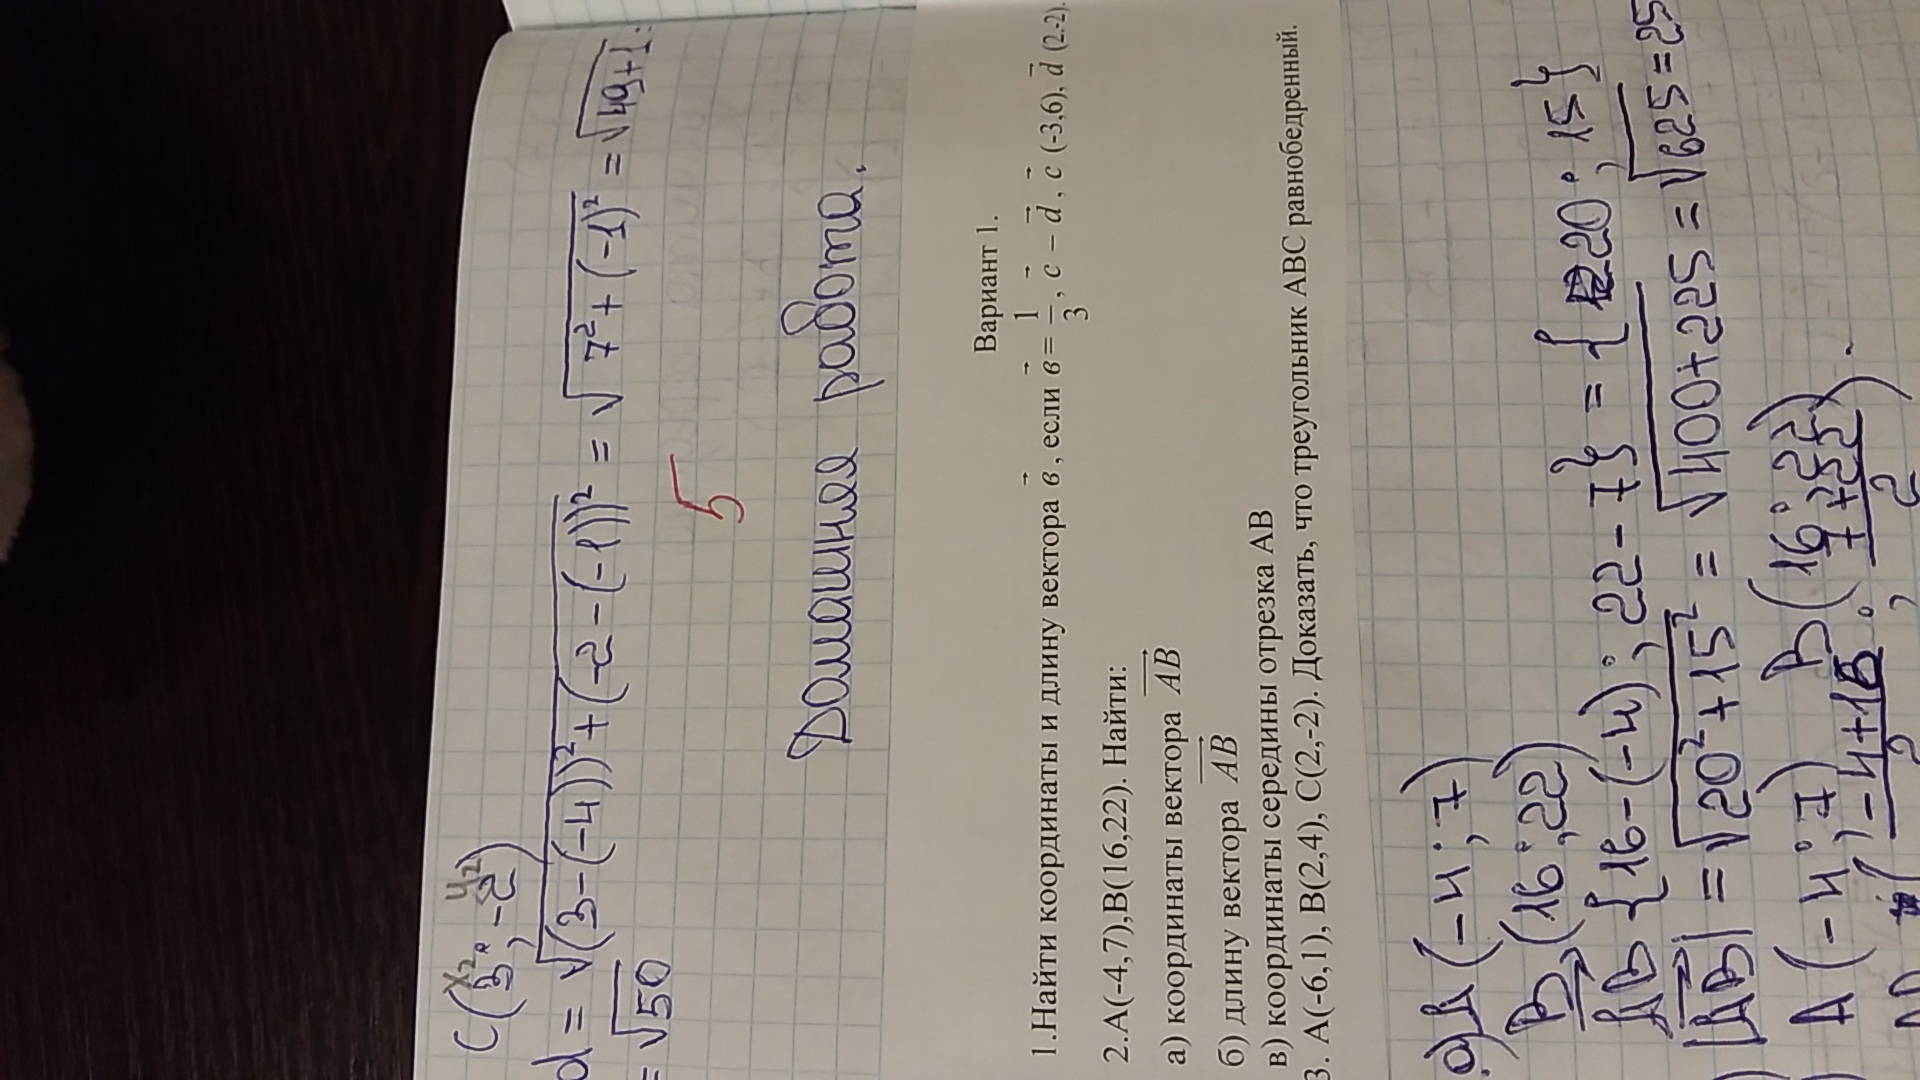 x₂ y₂
C(3; -2)
d = √(3-(-4))²+(-2-(-1))² = √7²+(-1)² = √49+1 =
= √50
5
Домашняя работа.
Вариант 1.
1.Найти координаты и длину вектора в, если в = 1/3, с – d, с (-3,6), d (2.-2).
2.А(-4,7),В(16,22). Найти:
а) координаты вектора AB
б) длину вектора AB
в) координаты середины отрезка АВ
3. А(-6,1), В(2,4), С(2,-2). Доказать, что треугольник АВС равнобедренный.
а) A(-4; 7)
B(16; 22)
AB {16-(-4); 22-7} = {20; 15}
|AB| = √20²+15² = √400+225 = √625=25
A(-4; 7) B(16; 22)
(-4+16/2; 7+22/2).